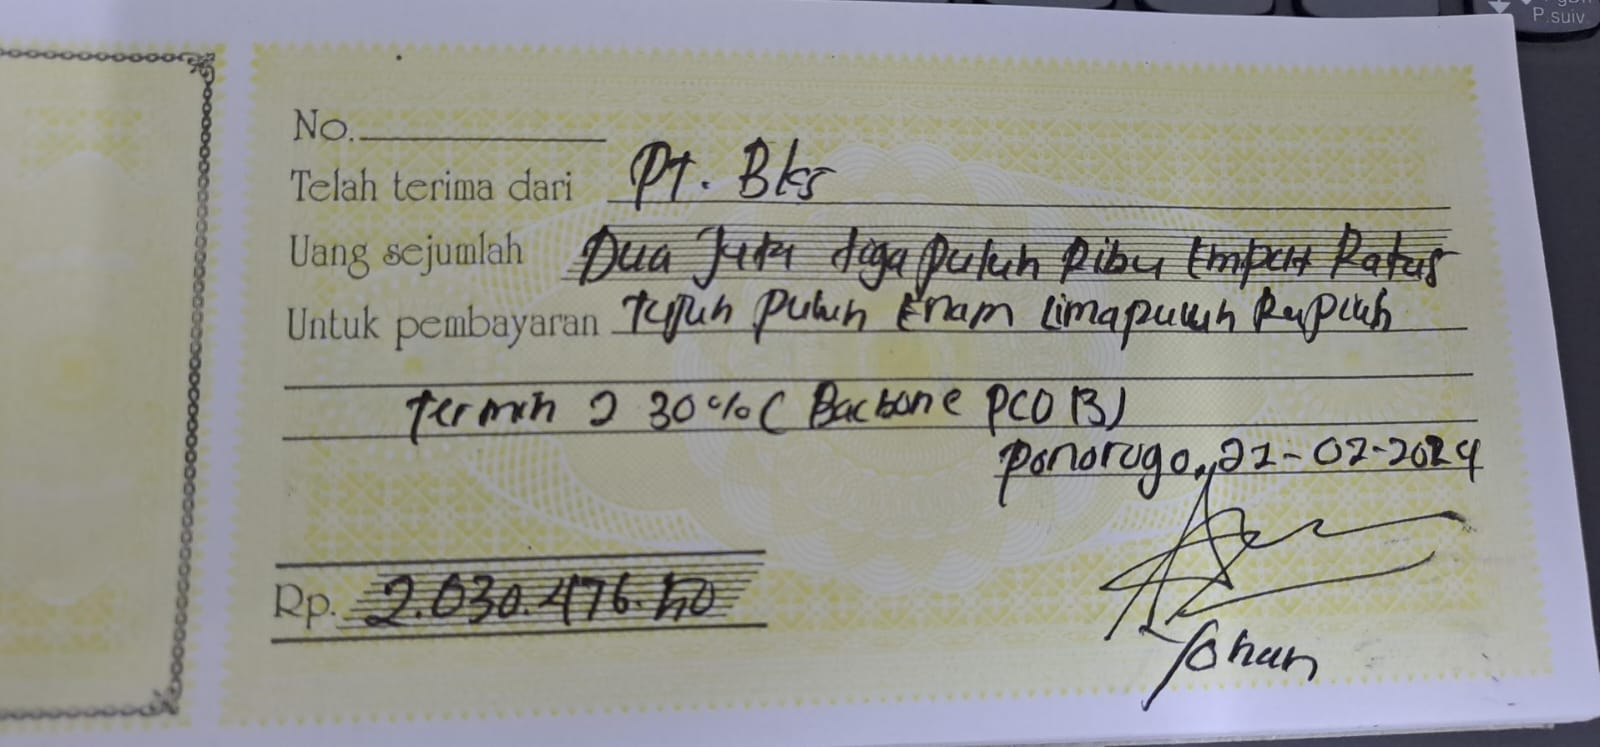 P.suiv
No.
Telah terima dari PT. Bks
Uang sejumlah Dua Juta tiga puluh Ribu Empat Ratus
Untuk pembayaran tujuh puluh Enam Limapuluh Rupiah
termin 2 30% (Backbone PCO 13)
Ponorogo, 21-02-2024
Rp. 2.030.476.50
Yohan